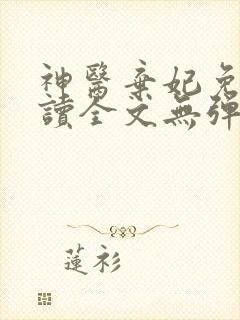 神醫棄妃免
讀全文無彈
蓮衫